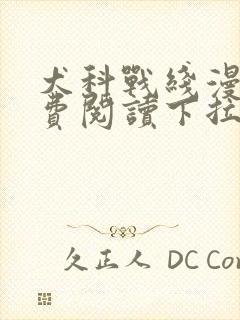 犬科戰綫漫
費閱讀下拉
久正人 DC Co